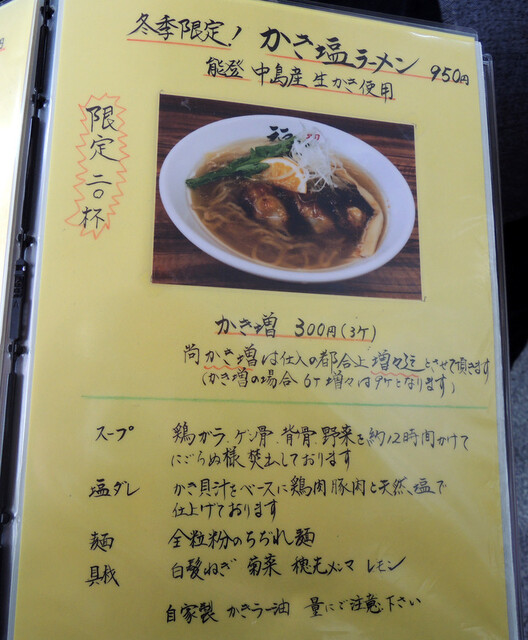 冬季限定! かき塩ラーメン 950円
能登 中島産 生かき使用
限定 二〇杯
かき増 300円(3ケ)
尚かき増は仕入の都合上増々迄とさせて頂きます
(かき増の場合 6ケ 増々は9ケとなります)
スープ 鶏ガラ.ゲンコツ骨.背骨.野菜を約12時間かけて
にごらぬ様、焚出しております
塩ダレ かき貝汁をベースに鶏肉豚肉と天然、塩で
仕上げております
麺 全粒粉のちぢれ麺
具材 白髪ねぎ 菊菜 穂先メンマ レモン
自家製 かきラー油 量にご注意下さい